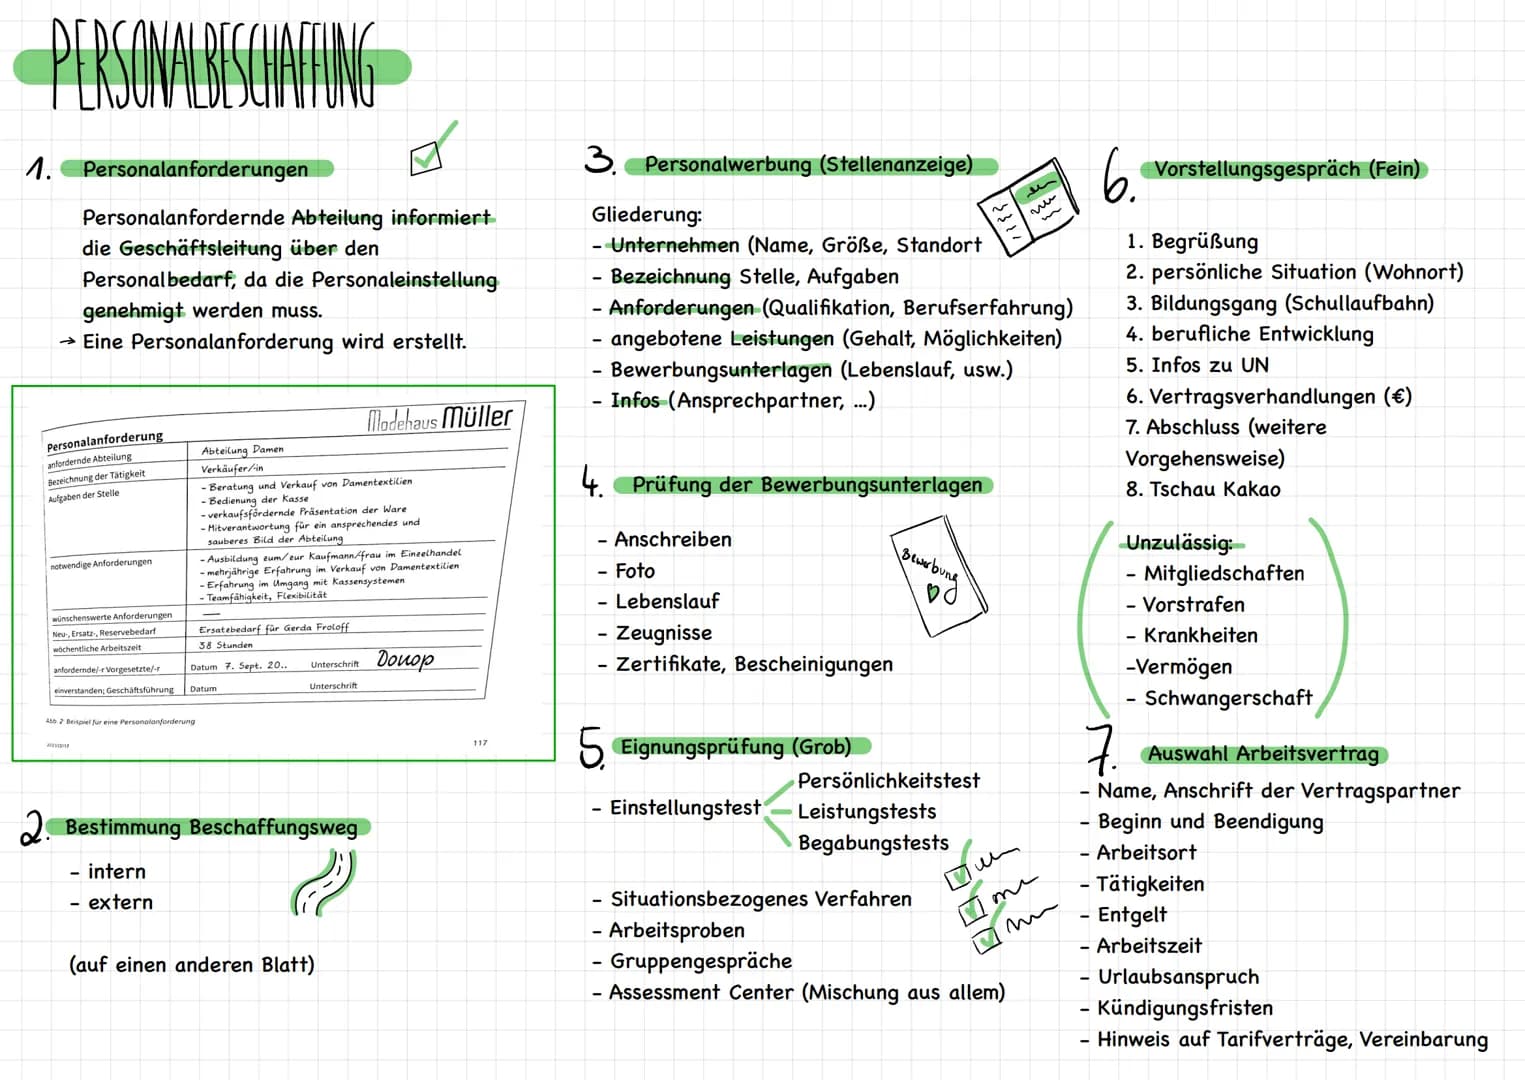 PERSONALBESCHAFFUNG
1. Personalanforderungen
Personalanfordernde Abteilung informiert
die Geschäftsleitung über den
Personalbedarf, da die Personaleinstellung
genehmigt werden muss.
→ Eine Personalanforderung wird erstellt.
Modehaus Müller
Personalanforderung
anfordernde Abteilung
Abteilung Damen
Bezeichnung der Tätigkeit
Verkäufer/in
Aufgaben der Stelle
- Beratung und Verkauf von Damentextilien
- Bedienung der Kasse
- verkaufsfördernde Präsentation der Ware
- Mitverantwortung für ein ansprechendes und
sauberes Bild der Abteilung
notwendige Anforderungen
- Ausbildung zum/zur Kaufmann/frau im Einzelhandel
- mehrjährige Erfahrung im Verkauf von Damentextilien
- Erfahrung im Umgang mit Kassensystemen
- Teamfähigkeit, Flexibilität
wünschenswerte Anforderungen
—
Neu-, Ersatz-, Reservebedarf
Ersatzbedarf für Gerda Froloff
wöchentliche Arbeitszeit
38 Stunden
anfordernde/-r Vorgesetzte/-r
Datum 7. Sept. 20.. Unterschrift Donop
einverstanden; Geschäftsführung
Datum Unterschrift
Abb. 2 Beispiel für eine Personalanforderung
117
2. Bestimmung Beschaffungsweg
- intern
- extern
(auf einen anderen Blatt)
3. Personalwerbung (Stellenanzeige)
Gliederung:
- Unternehmen (Name, Größe, Standort
- Bezeichnung Stelle, Aufgaben
- Anforderungen (Qualifikation, Berufserfahrung)
- angebotene Leistungen (Gehalt, Möglichkeiten)
- Bewerbungsunterlagen (Lebenslauf, usw.)
- Infos (Ansprechpartner, ...)
4. Prüfung der Bewerbungsunterlagen
- Anschreiben
- Foto
- Lebenslauf
- Zeugnisse
- Zertifikate, Bescheinigungen
Bewerbung
5. Eignungsprüfung (Grob)
- Einstellungstest
Persönlichkeitstest
Leistungstests
Begabungstests
- Situationsbezogenes Verfahren
- Arbeitsproben
- Gruppengespräche
- Assessment Center (Mischung aus allem)
6. Vorstellungsgespräch (Fein)
1. Begrüßung
2. persönliche Situation (Wohnort)
3. Bildungsgang (Schullaufbahn)
4. berufliche Entwicklung
5. Infos zu UN
6. Vertragsverhandlungen (€)
7. Abschluss (weitere
Vorgehensweise)
8. Tschau Kakao
Unzulässig:
- Mitgliedschaften
- Vorstrafen
- Krankheiten
-Vermögen
- Schwangerschaft
7. Auswahl Arbeitsvertrag
- Name, Anschrift der Vertragspartner
- Beginn und Beendigung
- Arbeitsort
- Tätigkeiten
- Entgelt
- Arbeitszeit
- Urlaubsanspruch
- Kündigungsfristen
- Hinweis auf Tarifverträge, Vereinbarung